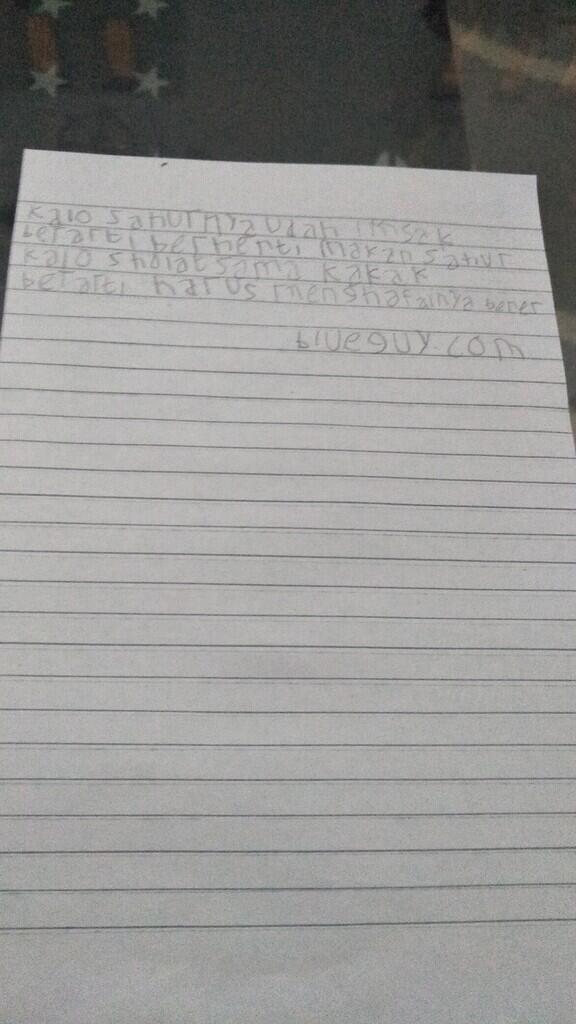 kalo sahurnya udah imsak
berarti berhenti makan sahur
kalo sholat sama kakak
berarti harus menshafainya bener
blueguy.com